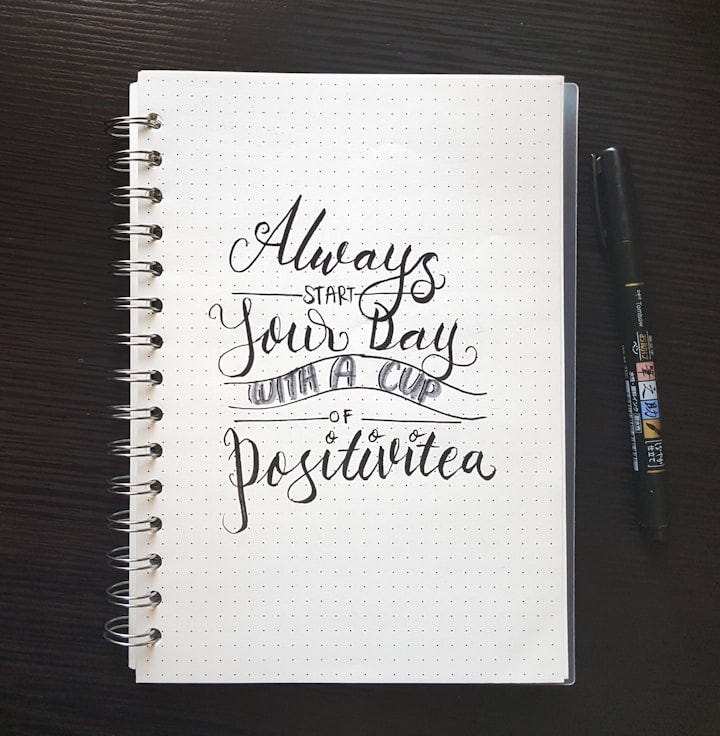 Always
START
Your Day
WITH A CUP
OF
Positivitea
Tombow